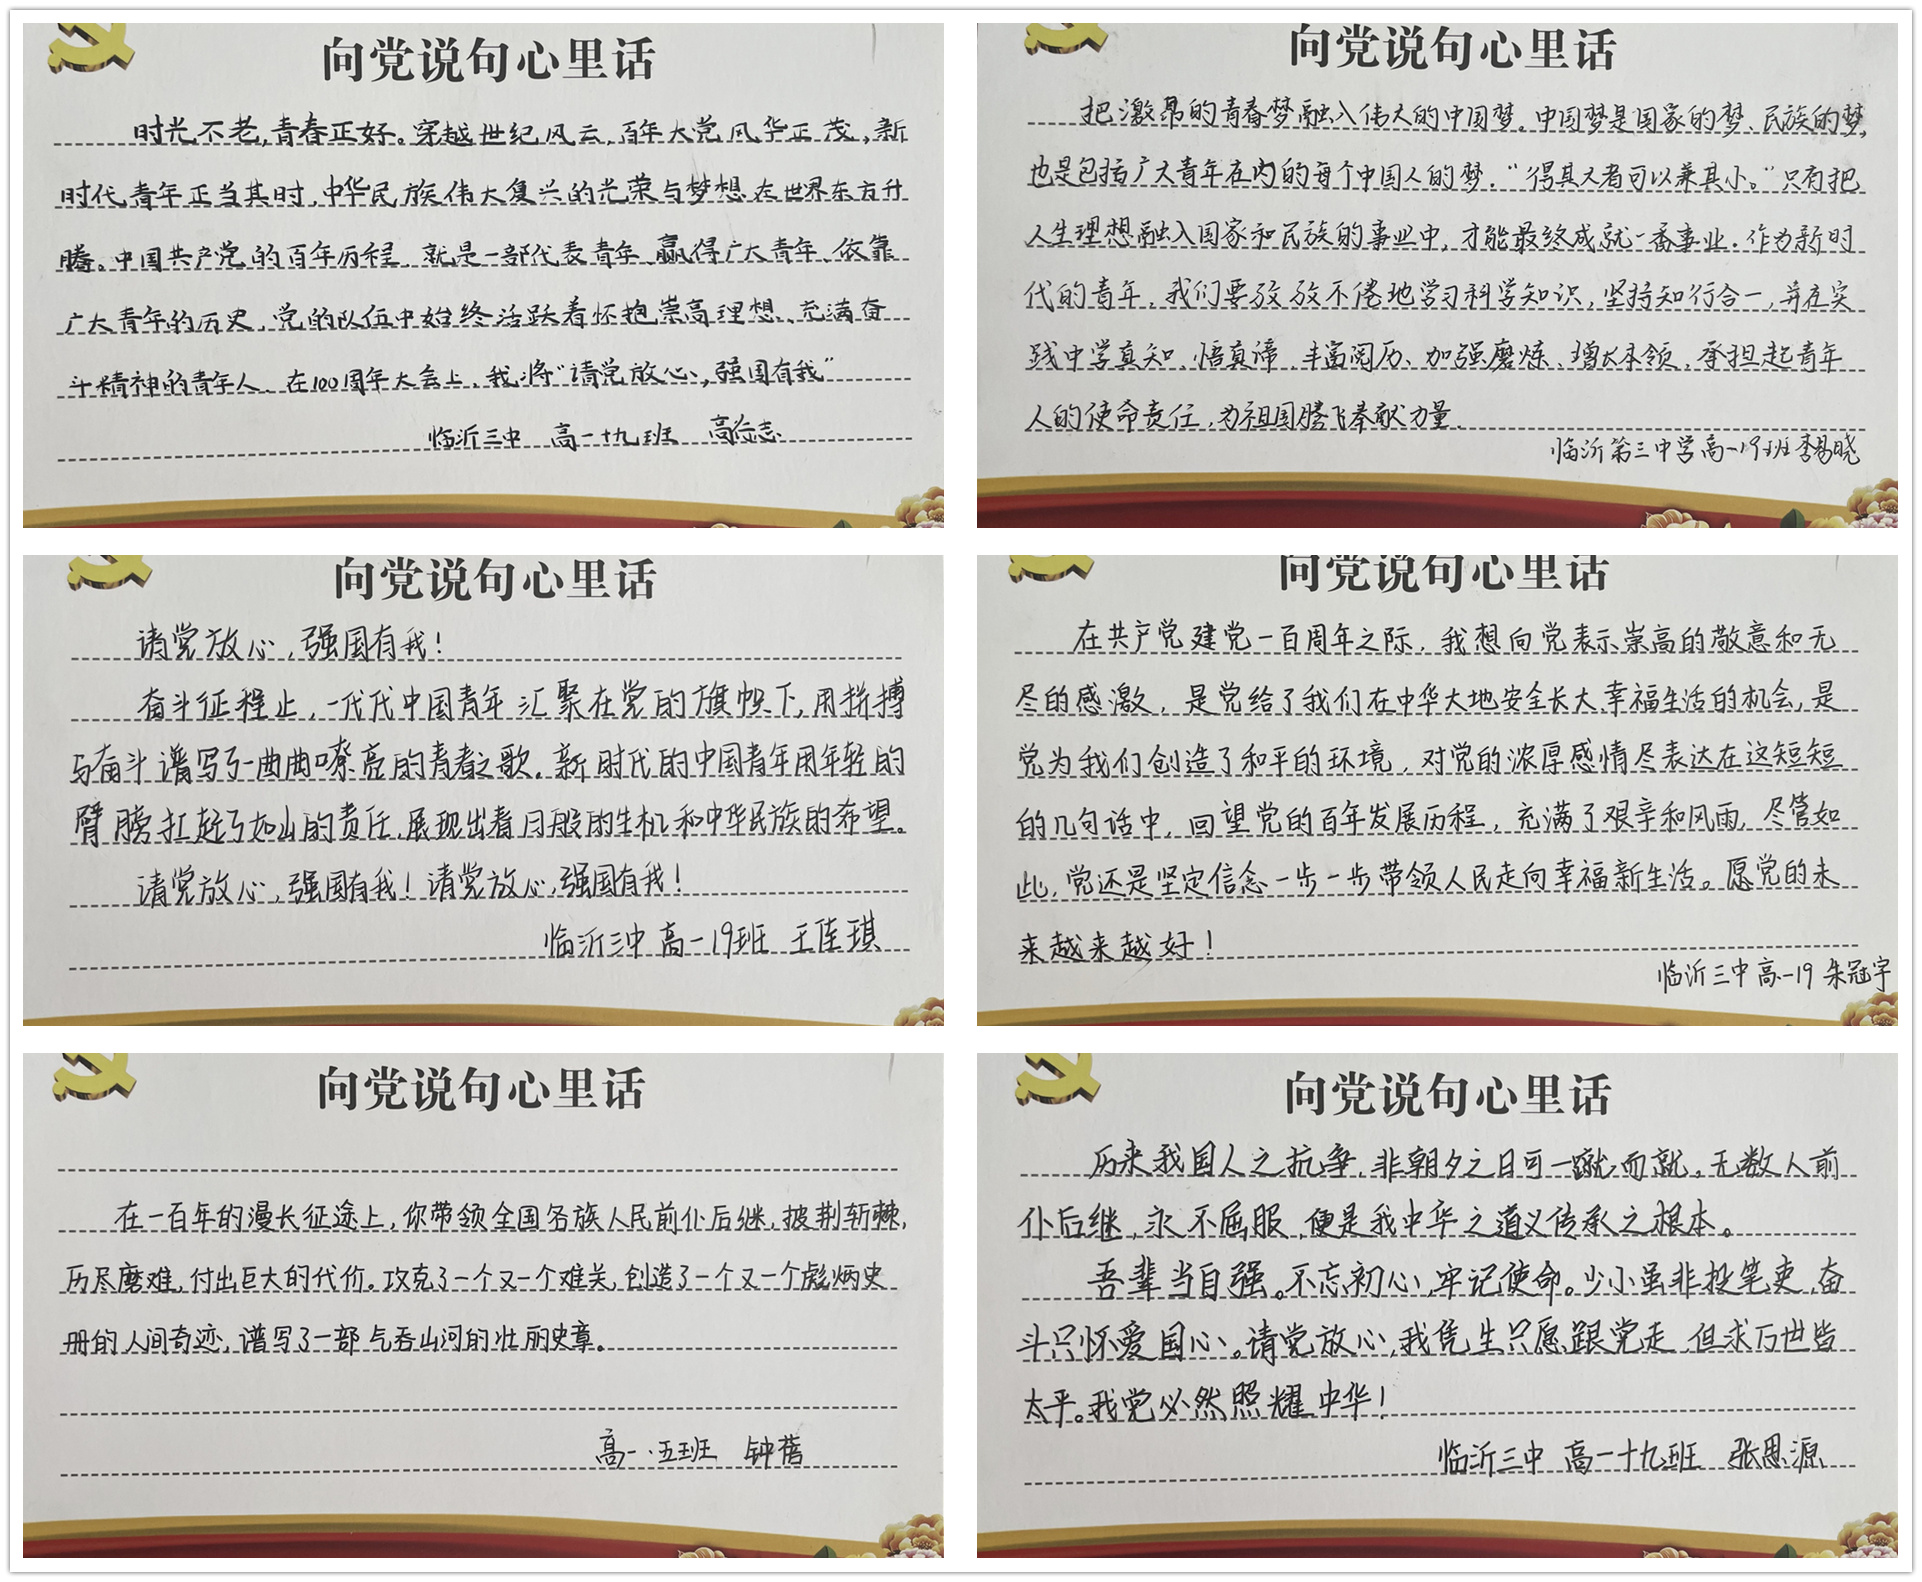 向党说句心里话
时光不老,青春正好。穿越世纪风云,百年大党风华正茂,新
时代青年正当其时,中华民族伟大复兴的光荣与梦想在世界东方升
腾。中国共产党的百年历程,就是一部代表青年、赢得广大青年、依靠
广大青年的历史,党的队伍中始终活跃着怀抱崇高理想、充满奋
斗精神的青年人、在100周年大会上,我将“请党放心,强国有我”
临沂三中 高一十九班 高行志
向党说句心里话
把激昂的青春梦融入伟大的中国梦。中国梦是国家的梦、民族的梦,
也是包括广大青年在内的每个中国人的梦.“得其大者可以兼其小。”只有把
人生理想融入国家和民族的事业中,才能最终成就一番事业.作为新时
代的青年,我们要孜孜不倦地学习科学知识,坚持知行合一,并在实
践中学真知、悟真谛,丰富阅历、加强磨炼、增长本领,承担起青年
人的使命责任,为祖国腾飞奉献力量.
临沂第三中学高一19班李易晓
向党说句心里话
请党放心,强国有我!
奋斗征程上,一代代中国青年汇聚在党的旗帜下,用拼搏
与奋斗谱写了一曲曲嘹亮的青春之歌.新时代的中国青年用年轻的
臂膀扛起了如山的责任,展现出春日般的生机和中华民族的希望。
请党放心,强国有我!请党放心,强国有我!
临沂三中 高一19班 王佳琪
向党说句心里话
在共产党建党一百周年之际,我想向党表示崇高的敬意和无
尽的感激,是党给了我们在中华大地安全长大,幸福生活的机会,是
党为我们创造了和平的环境,对党的浓厚感情尽表达在这短短
的几句话中,回望党的百年发展历程,充满了艰辛和风雨,尽管如
此,党还是坚定信念一步一步带领人民走向幸福新生活。愿党的未
来越来越好!
临沂三中高一19 朱冠宇
向党说句心里话
在一百年的漫长征途上,你带领全国各族人民前仆后继,披荆斩棘,
历尽磨难,付出巨大的代价。攻克了一个又一个难关,创造了一个又一个彪炳史
册的人间奇迹,谱写了一部气吞山河的壮丽史章。
高一.五班 钟蓓
向党说句心里话
历来我国人之抗争,非朝夕之日可一蹴而就。无数人前
仆后继,永不屈服,便是我中华之道义传承之根本。
吾辈当自强。不忘初心,牢记使命。少小虽非投笔吏,奋
斗只怀爱国心。请党放心,我凭生只愿跟党走,但求万世皆
太平。我党必然照耀中华!
临沂三中 高一十九班 张恩源